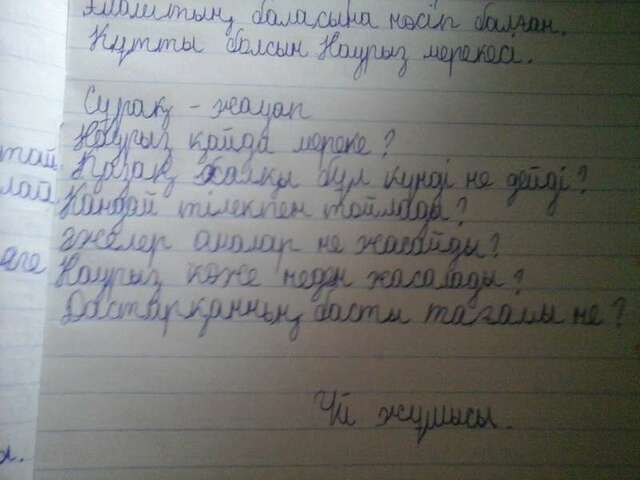 баласына нәсіп болған.
Құтты болсын Наурыз мерекесі.
Сұрақ - жауап
Наурыз қайда мереке?
той Қазақ халқы бұл күнді не дейді?
лай. Қандай тілекпен тойлады?
әжелер аналар не жасайды?
Наурыз көже неден жасалады?
Дастарқанның басты тағамы не?
Үй жұмысы.